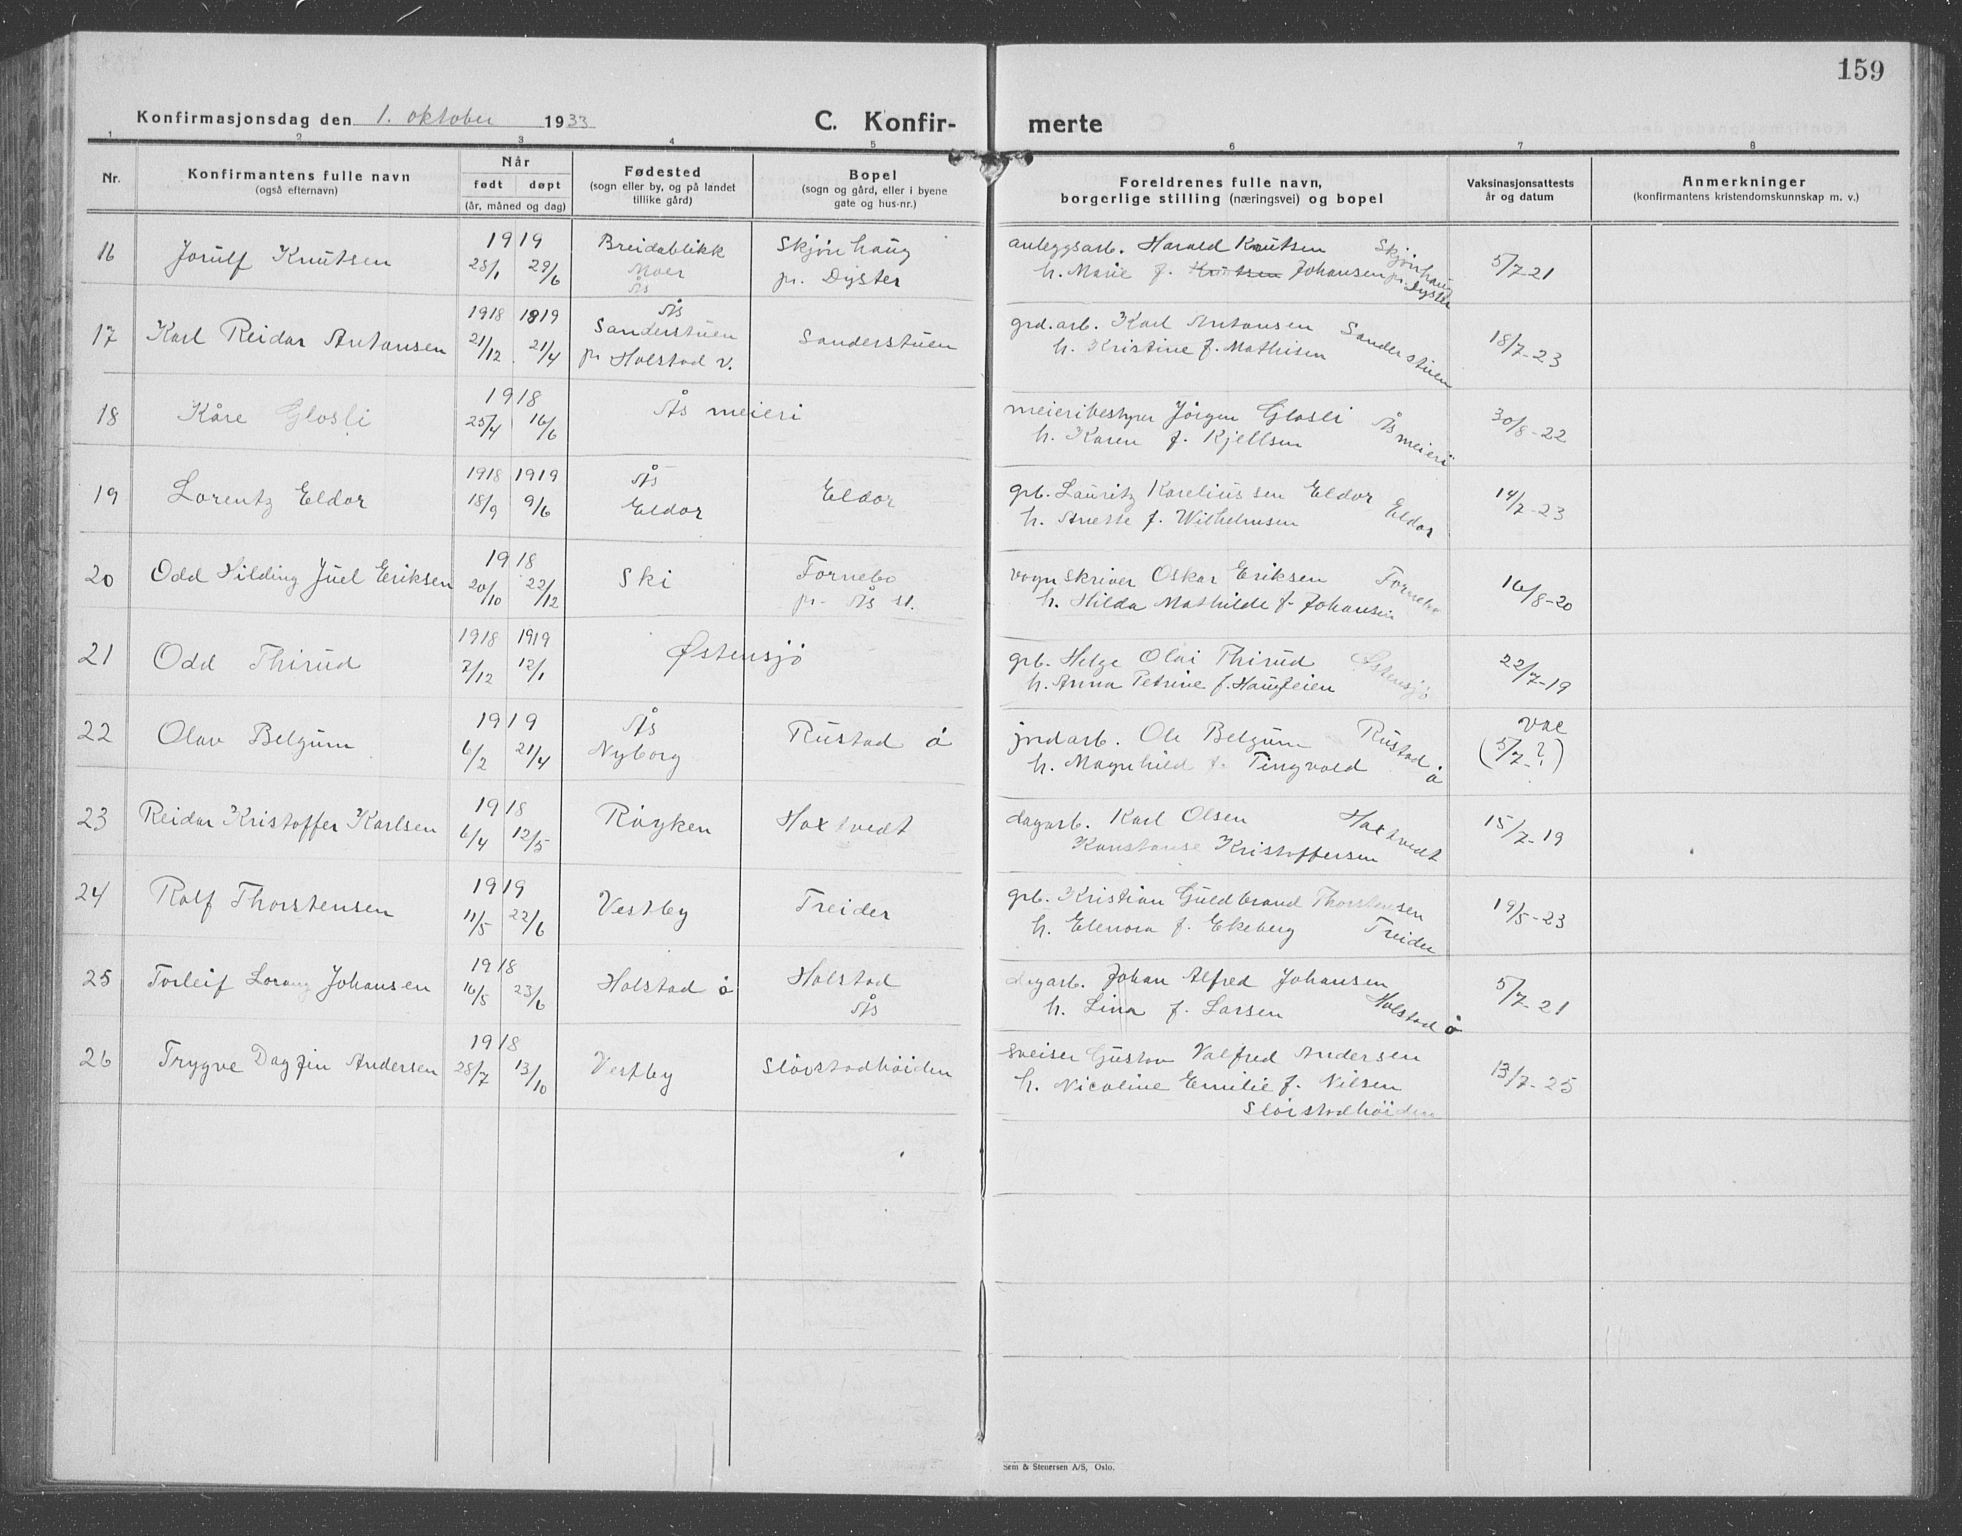 159
Konfirmasjonsdag den 1. oktober 1933 C. Konfir- merte
1 2 3 4 5 6 7 8
Nr. Konfirmantens fulle navn (også efternavn) Når født døpt (år, måned og dag) Fødested (sogn eller by, og på landet tillike gård) Bopel (sogn og gård, eller i byene gate og hus-nr.) Foreldrenes fulle navn, borgerlige stilling (næringsvei) og bopel Vaksinasjonsattests år og datum Anmerkninger (konfirmantens kristendomskunnskap m. v.)
16 Jorulf Knutsen 1919 28/1 29/6 Breidablikk Moer Ås Skjørhaug pr. Dyster anleggsarb. Harald Knutsen h. Marie f. Knutsen Johansen Skjørhaug pr. Dyster 5/7-21
17 Karl Reidar Antonsen 1918 1819 21/12 21/4 Ås Sanderstuen pr Holstad v. Sanderstuen grd.arb. Karl Antonsen h. Kristine f. Mathisen Sanderstuen 18/7-23
18 Kåre Glosli 1918 25/4 16/6 Ås meieri meieribestyrer Jørgen Glosli h. Karen f. Kjellsen Ås meieri 30/8-22
19 Lorentz Eldor 1918 1919 18/9 9/6 Ås Eldor Eldor grb. Lauritz Kareliussen Eldor h. Anette f. Wilhelmsen Eldor 14/7-23
20 Odd Hilding Juel Eriksen 1918 20/10 22/12 Ski Fornebo pr. Ås st. vognskriver Oskar Eriksen h. Hilda Mathilde f. Johansen Fornebo 16/8-20
21 Odd Thirud 1918 1919 7/12 12/1 Østensjø grb. Helge Olai Thirud h. Anna Petrine f. Haugteien Østensjø 22/7-19
22 Olav Belgum 1919 6/2 21/4 Ås Nyborg Rustad ø jordarb. Ole Belgum h. Magnhild f. Tingvold Rustad ø vac (5/7-?)
23 Reidar Kristoffer Karlsen 1918 6/4 12/5 Røyken Haxtvedt dagarb. Karl Olsen Konstanse Kristoffersen Haxtvedt 15/7-19
24 Rolf Thorstensen 1919 11/5 22/6 Vestby Treider grb. Kristian Guldbrand Thorstensen h. Elenora f. Ekeberg Treider 19/5-23
25 Torleif Lorang Johansen 1918 16/5 23/6 Holstad ø Holstad Ås dagarb. Johan Alfred Johansen h. Lina f. Larsen Holstad ø 5/7-21
26 Trygve Dagfin Andersen 1918 28/7 13/10 Vestby Sløvstadhøiden sveiser Gustav Valfred Andersen h. Nicoline Emilie f. Nilsen Sløvstadhøiden 13/7-25
Sem & Stenersen A/S, Oslo.